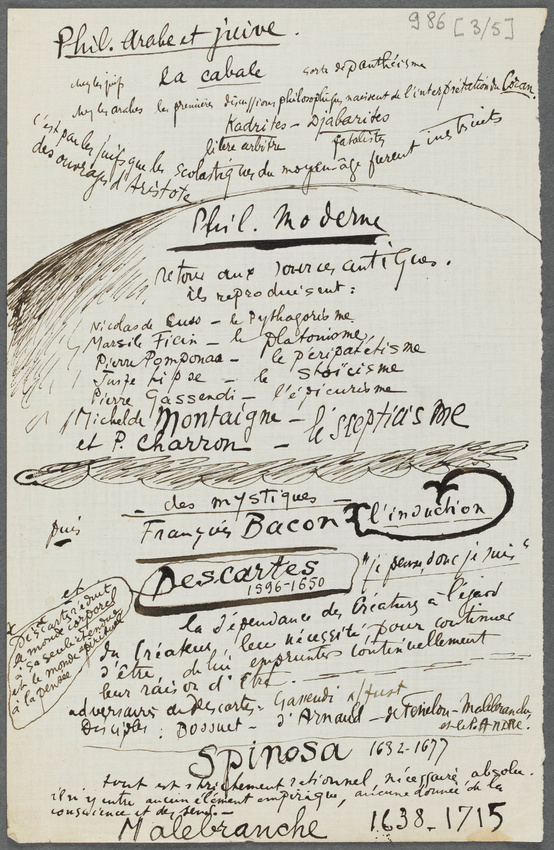 986 [3/5]
Phil. Arabe et juive.
chez les juifs la cabale sorte de panthéisme
chez les arabes les premières discussions philosophiques naissent de l'interprétation du Coran.
Kadrites – Djabarites
libre arbitre fatalistes
c'est par les juifs que les scolastiques du moyen âge furent instruits
des ouvrages d'Aristote
Phil. Moderne
retour aux sources antiques.
ils reproduisent :
Nicolas de Cuso – le Pythagorisme
Marsile Ficin – le platonisme
Pierre Pomponaa – le péripatétisme
Juste Lipse – le stoïcisme
Pierre Gassendi – l'épicurisme
Michel de Montaigne
et P. Charron – le scepticisme
– des mystiques –
puis François Bacon l'induction
Descartes "je pense, donc je suis"
1596-1650
et
Descartes réduit
le monde corporel
à sa seule étendue
et le monde spirituel
à la pensée
la dépendance des Créatures à l'égard
du Créateur, leur nécessité pour continuer
d'être, de lui emprunter continuellement
leur raison d'être.
adversaires de Descartes – Gassendi
Disciples : Bossuet – d'Arnaud – de Fénelon – Malebranche
et le P. André.
Spinosa 1632-1677
tout est strictement rationnel nécessaire absolu.
il n'y entre aucun élément empirique, aucune donnée de la
conscience et des sens. –
Malebranche 1638-1715